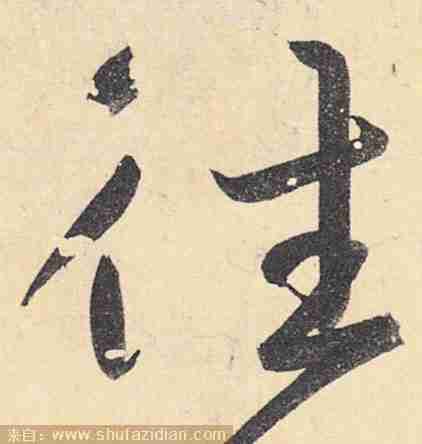 往
来自：www.shufazidian.com